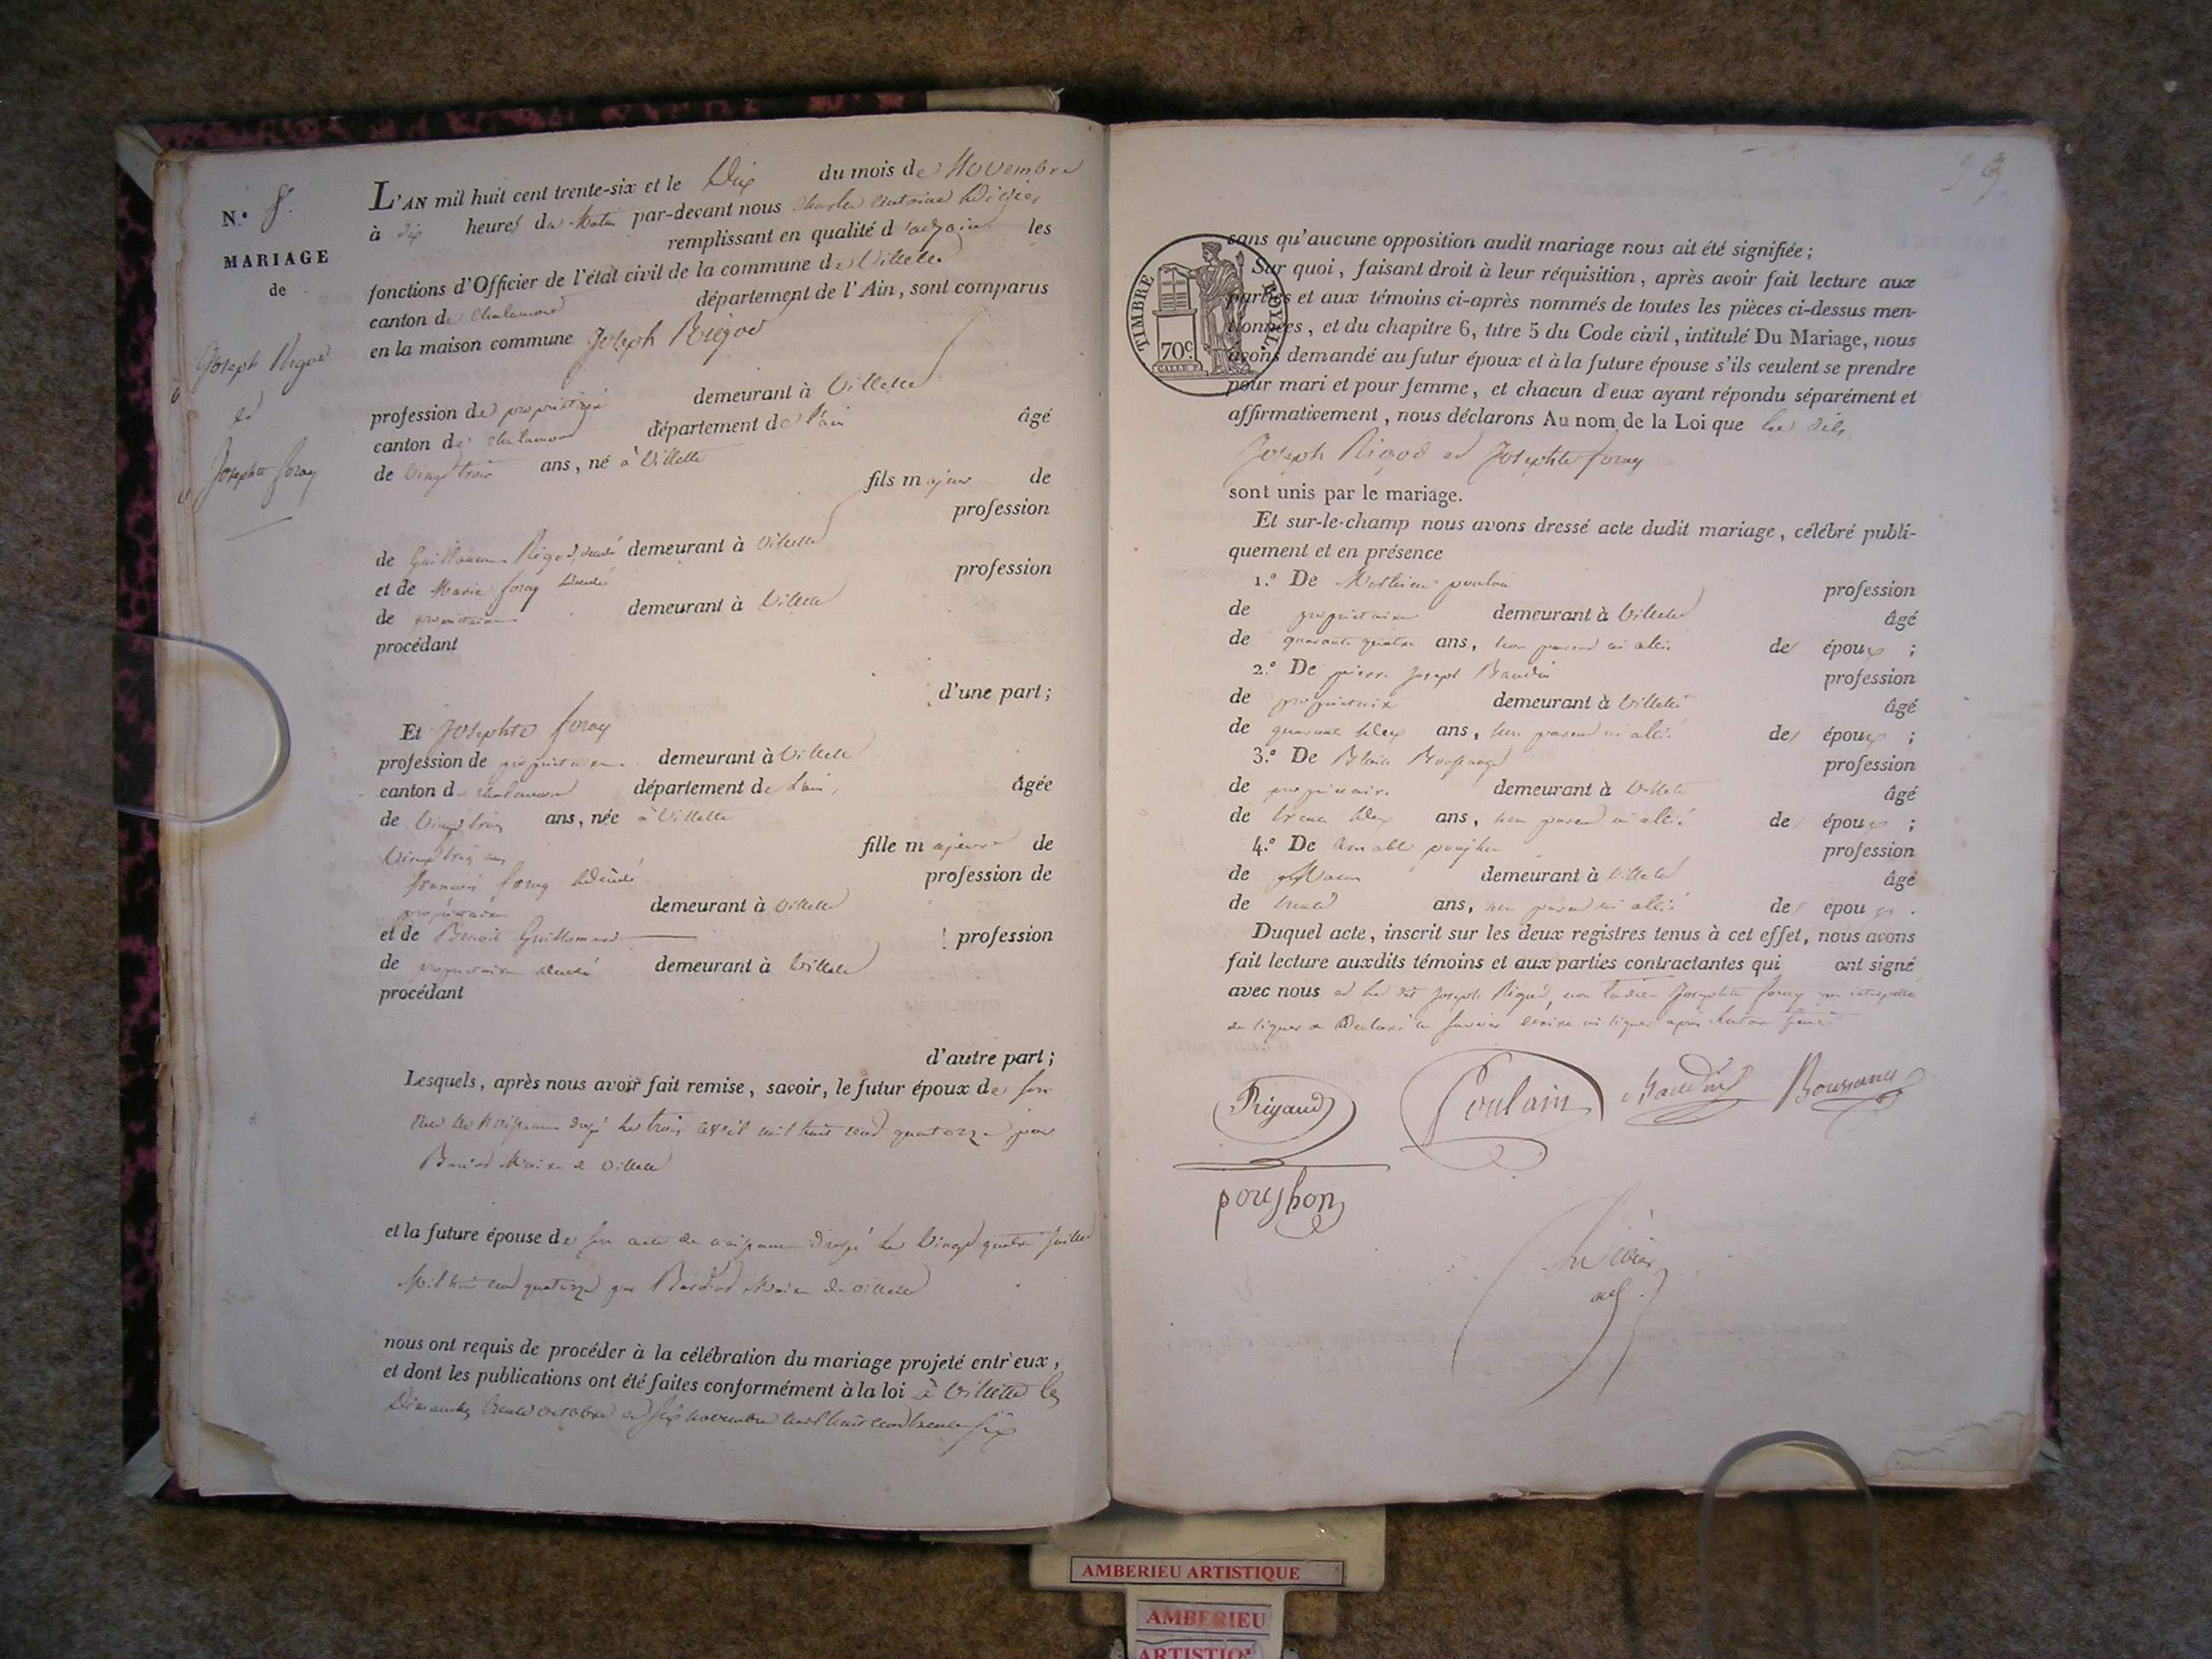 N.° 8.
MARIAGE
de
Joseph Rigod
et
Josephte foray
L'AN mil huit cent trente-six et le Dix du mois de Novembre
à dix heures du Matin par-devant nous Charles Antoine Didier
remplissant en qualité d'adjoint les
fonctions d'Officier de l'état civil de la commune de Villette
canton de chalamont département de l'Ain, sont comparus
en la maison commune Joseph Rigod
profession de propriétaire demeurant à Villette
canton de chalamont département de l'ain âgé
de Vingt trois ans, né à Villette
fils majeur de
profession
de Guillaume Rigod, demeurant à Villette
et de Marie foray profession
de propriétaire demeurant à Villette
procédant
d'une part;
Et Josephte foray
profession de propriétaire demeurant à Villette
canton de chalamont département de l'ain, âgée
de Vingt ans, née à Villette
fille majeure de
françois foray profession de
propriétaire demeurant à Villette
et de Benoite Guillemard profession
de propriétaire demeurant à Villette
procédant
d'autre part;
Lesquels, après nous avoir fait remise, savoir, le futur époux de son
acte de Naissance dressé le trois avril mil huit cent quatorze, par
Maire de Villette
et la future épouse de son acte de naissance dressé le Vingt quatre Juillet
Mil huit cent quatorze par Maire de Villette
nous ont requis de procéder à la célébration du mariage projeté entr'eux,
et dont les publications ont été faites conformément à la loi à Villette les
Dimanches trente octobre et six novembre mil huit cent trente six
sans qu'aucune opposition audit mariage nous ait été signifiée;
Sur quoi, faisant droit à leur réquisition, après avoir fait lecture aux
parties et aux témoins ci-après nommés de toutes les pièces ci-dessus men-
tionnées, et du chapitre 6, titre 5 du Code civil, intitulé Du Mariage, nous
avons demandé au futur époux et à la future épouse s'ils veulent se prendre
pour mari et pour femme, et chacun d'eux ayant répondu séparément et
affirmativement, nous déclarons Au nom de la Loi que les dits
Joseph Rigod et Josephte foray
sont unis par le mariage.
TIMBRE ROYAL.
70c
Et sur-le-champ nous avons dressé acte dudit mariage, célébré publi-
quement et en présence
1.° De Mathieu poulain profession
de propriétaire demeurant à Villette âgé
de quarante quatre ans, non parent ni allié des époux;
2.° De pierre Joseph Baudin profession
de propriétaire demeurant à Villette âgé
de quarante deux ans, non parent ni allié des époux;
3.° De profession
de propriétaire demeurant à Villette âgé
de trente deux ans, non parent ni allié des époux;
4.° De profession
de demeurant à Villette âgé
de trente ans, non parent ni allié des epoux.
Duquel acte, inscrit sur les deux registres tenus à cet effet, nous avons
fait lecture auxdits témoins et aux parties contractantes qui ont signé
avec nous et le dit Joseph Rigod, non ladite Josephte foray
de signer a déclaré ne savoir écrire ni signer après lecture faite
Rigaud Poulain Baudin
poushon
Didier
adj.
AMBERIEU ARTISTIQUE
AMBERIEU
ARTISTIQ